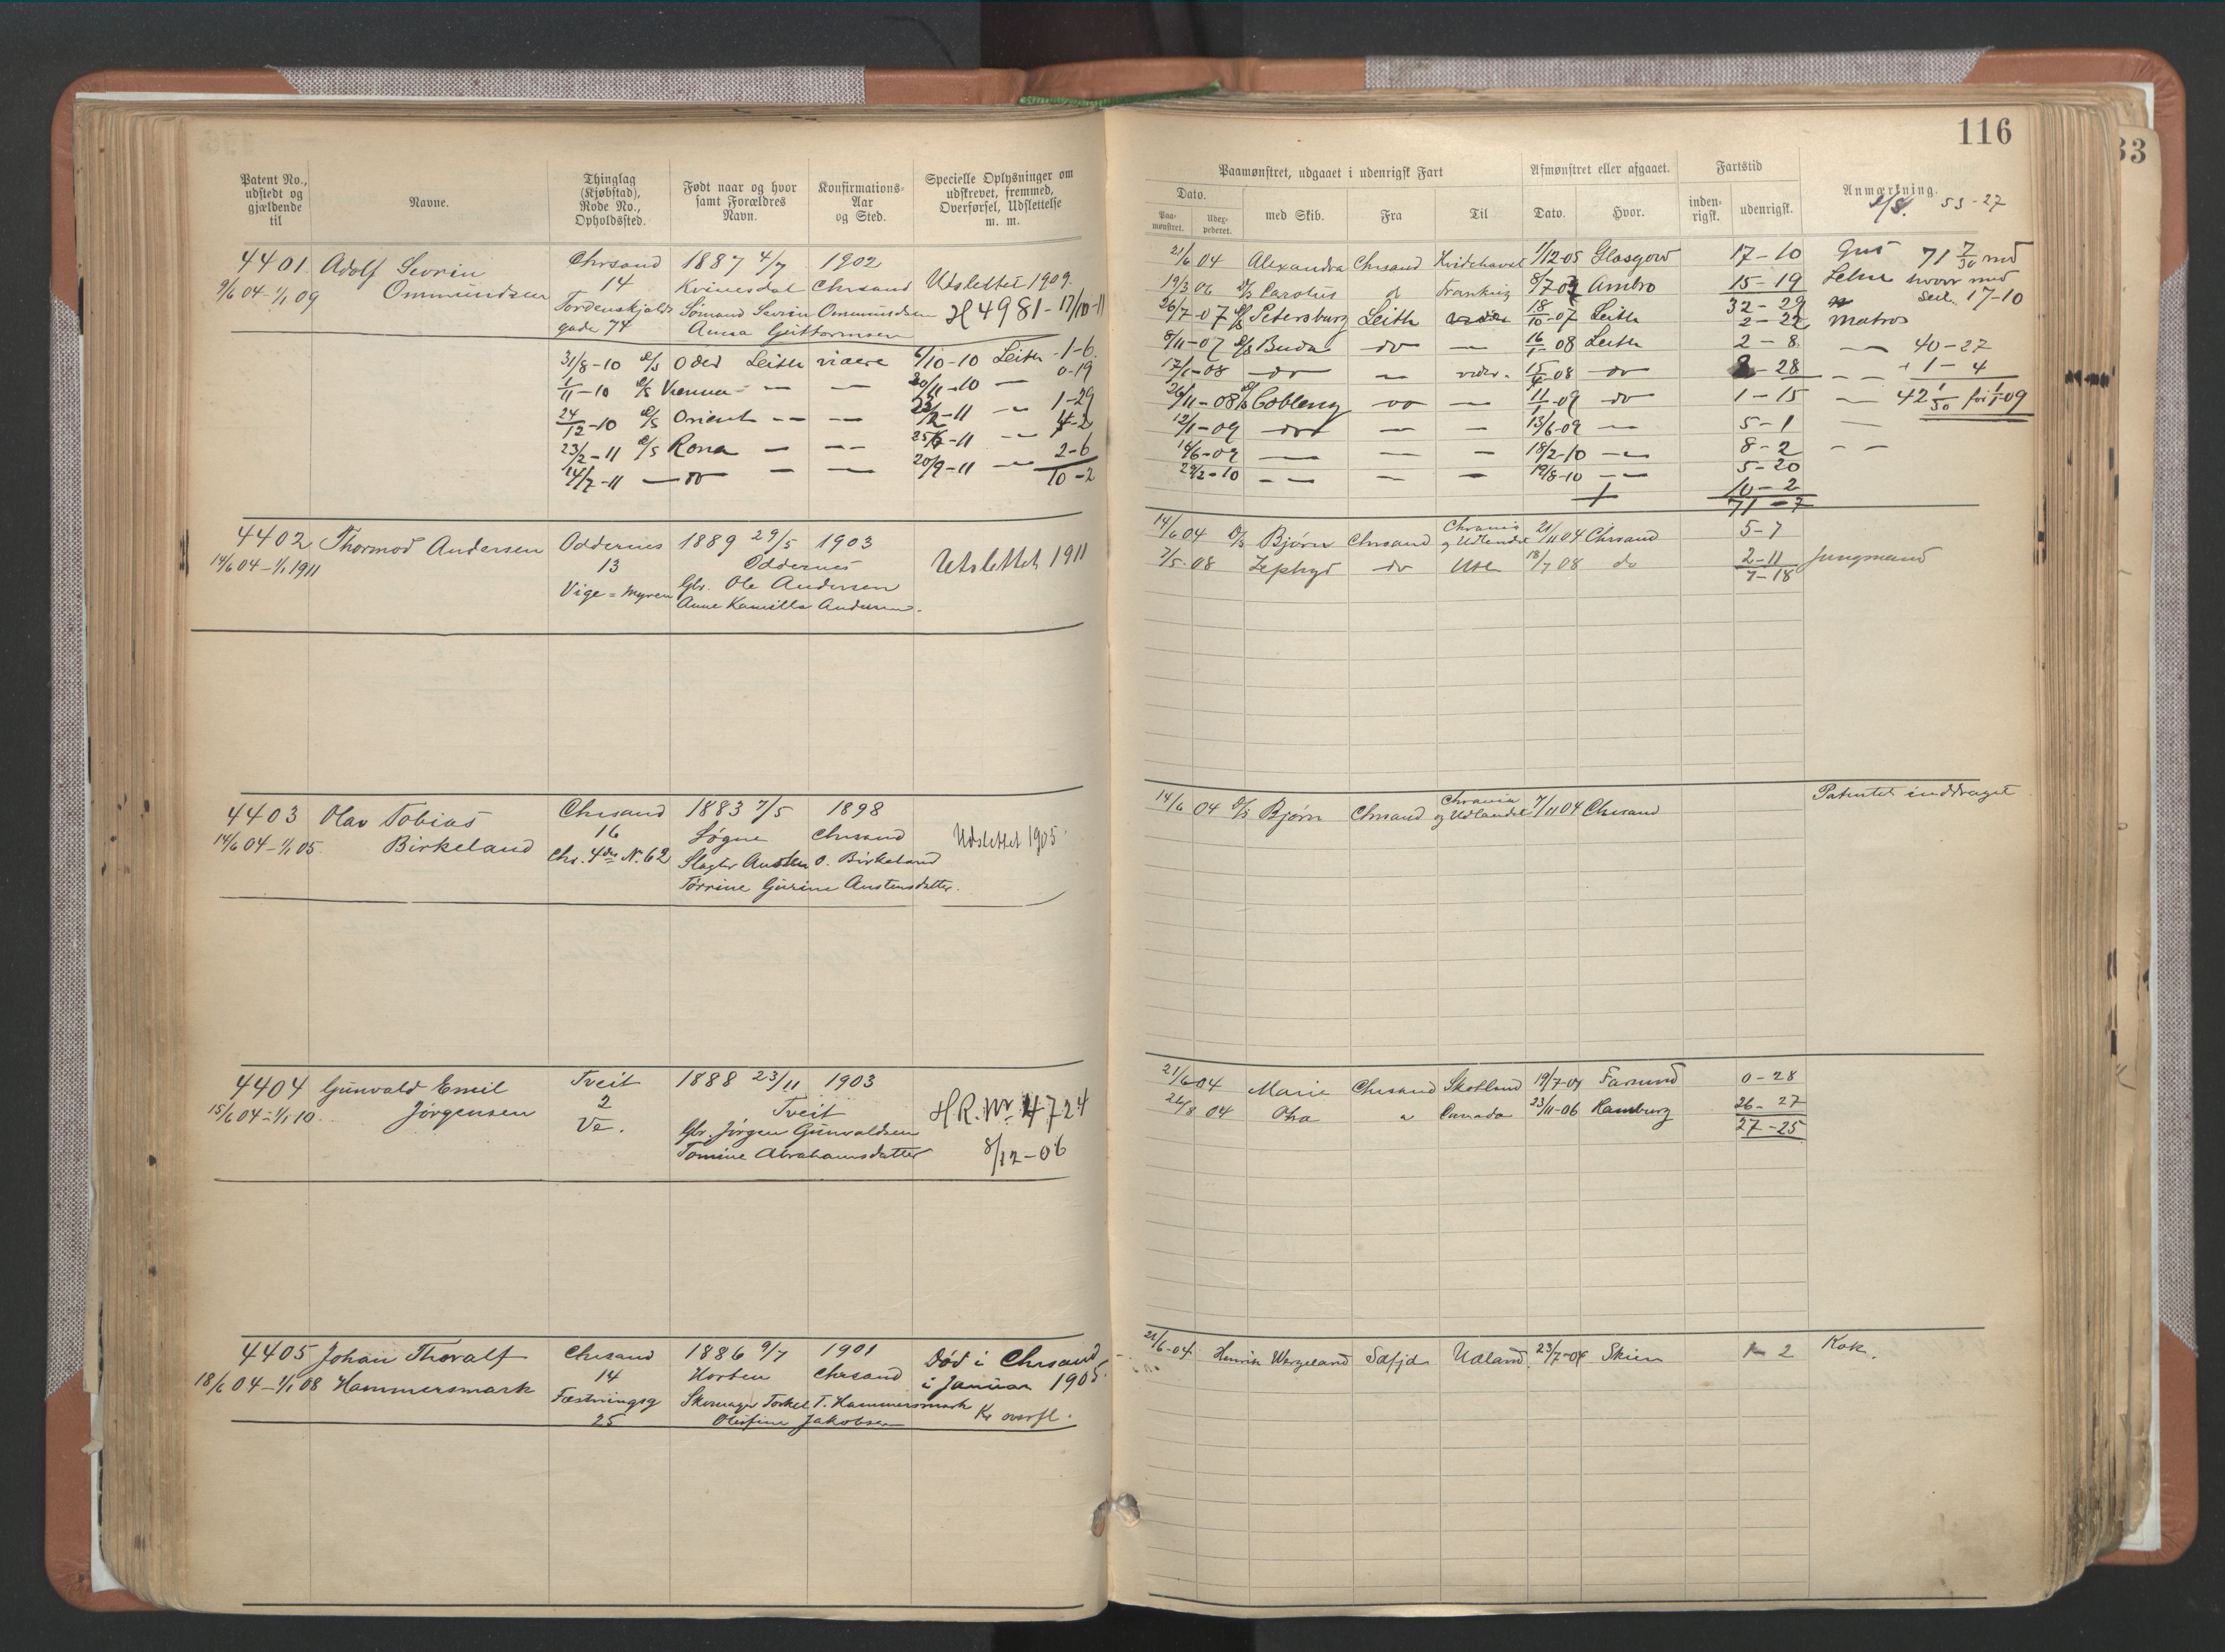 116
33
Patent No., udstedt og gjældende til
Navne.
Thinglag (Kjøbstad), Rode No., Opholdssted.
Født naar og hvor samt Forældres Navn.
Konfirmations-Aar og Sted.
Specielle Oplysninger om udskrevet, fremmed, Overførsel, Udslettelse m. m.
Paamønstret, udgaaet i udenrigsk Fart
Afmønstret eller afgaaet.
Fartstid
Anmærkning.
Dato.
Paa-mønstret.
Udex-pederet.
med Skib.
Fra
Til
Dato.
Hvor.
inden-rigsk.
udenrigsk.
53-27
4401 Adolf Sevrin Chrsand 1887 4/7 1902
9/6 04-1/1 09 Ommundsen 14 Kvinesdal Chrsand Udslettet 1909.
Tordenskjolds Sømand Sevrin Ommundsen H 4981-17/10-11
gade 74 Anna Guttormsen
31/8-10 D/S Oded Leith videre 6/10-10 Leith 1-6
1/11-10 D/S Vienna — — 20/11-10 — 0-19
24/12-10 D/S Orient — — 23/2-11 — 1-29
23/2-11 D/S Rona — — 25/6-11 — 4-2
14/7-11 — do — — 20/9-11 — 2-6
10-2
21/6 04 Alexandra Chrsand Hvidehavet 1/12-05 Glasgow 17-10 Gut 71 7/30 md
19/3 06 D/S Carolus d Frankrig 8/7 07 Ambro 15-19
32-29 Seil. 17-10
26/7-07 D/S Petersburg Leith videre 18/10-07 Leith 2-22 Matros
8/11-07 D/S Buda do — 16/1-08 Leith 2-8 — 40-27
17/1-08 do — vider. 15/4-08 do 2-28 — + 1-4
26/11-08 D/S Coblenz do — 11/1-09 do 1-15 — 42 1/30 før 1/1-09
12/1-09 do — — 13/6-09 — 5-1 —
14/6-09 — — — 18/2-10 — 8-2 — —
29/2-10 — — — 19/8-10 — 5-20
10-2
71-7
4402 Thormod Andersen Oddernes 1889 29/5 1903
14/6 04-1/1 1911 13 Oddernes Udslettet 1911
Vige=Myren Gbr. Ole Andersen
Anne Kamilla Andersen.
14/6 04 D/S Bjørn Chrsand Chrania og Udlandet 21/11 04 Chrsand 5-7
2/5-08 Zephyr do Udl 18/7 08 do 2-11 Jungmand
7-18
4403 Olav Tobias Chrsand 1883 7/5 1898
14/6 04-1/1 05 Birkeland 16 Søgne Chrsand Udslettet 1905
Chr. 4de N. 62 Slagter Austen O. Birkeland
Torrine Gurine Austensdatter.
14/6 04 D/S Bjørn Chrsand Chrania og Udlandet 7/11 04 Chrsand Patentet inddraget
4404 Gunvald Emil Tveit 1888 23/11 1903
15/6 04-1/1 10 Jørgensen 2 Tveit HR. Nr 4724
Ve. Gbr. Jørgen Gunvaldsen
Tomine Abrahamsdatter 8/12-06
21/6 04 Marie Chrsand Skotland 19/7-04 Farsund 0-28
26/8 04 Ora Canada 23/11-06 Hamburg 26-27
27-25
4405 Johan Thoralf Chrsand 1886 9/7 1901 Død i Chrsand
18/6 04-1/1 08 Hammersmark 14 Horten Chrsand i Januar 1905.
Fæstningsg Skomager Torkel T. Hammersmark
25 Olufine Jakobsen
21/6-04 Henrik Wergeland Sdfjd. Udland 23/7-04 Skien 2 Kok.